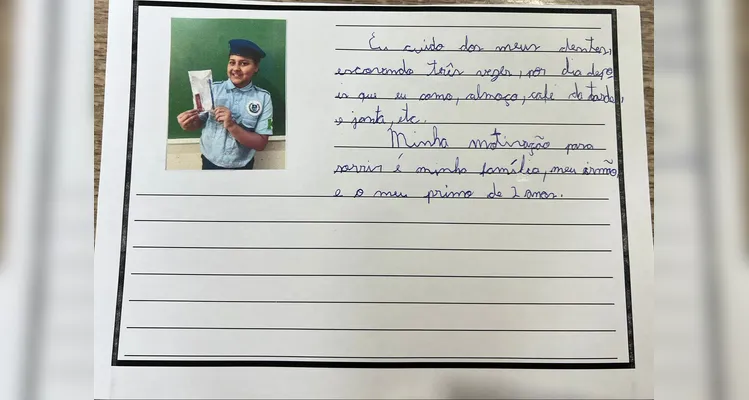 Eu cuido dos meus dentes,
escovando três vezes, por dia depo
is que eu como, almoço, café da tarde,
e janta, etc.
Minha motivação para
sorrir é minha família, meu irmão
e o meu primo de 2 anos.